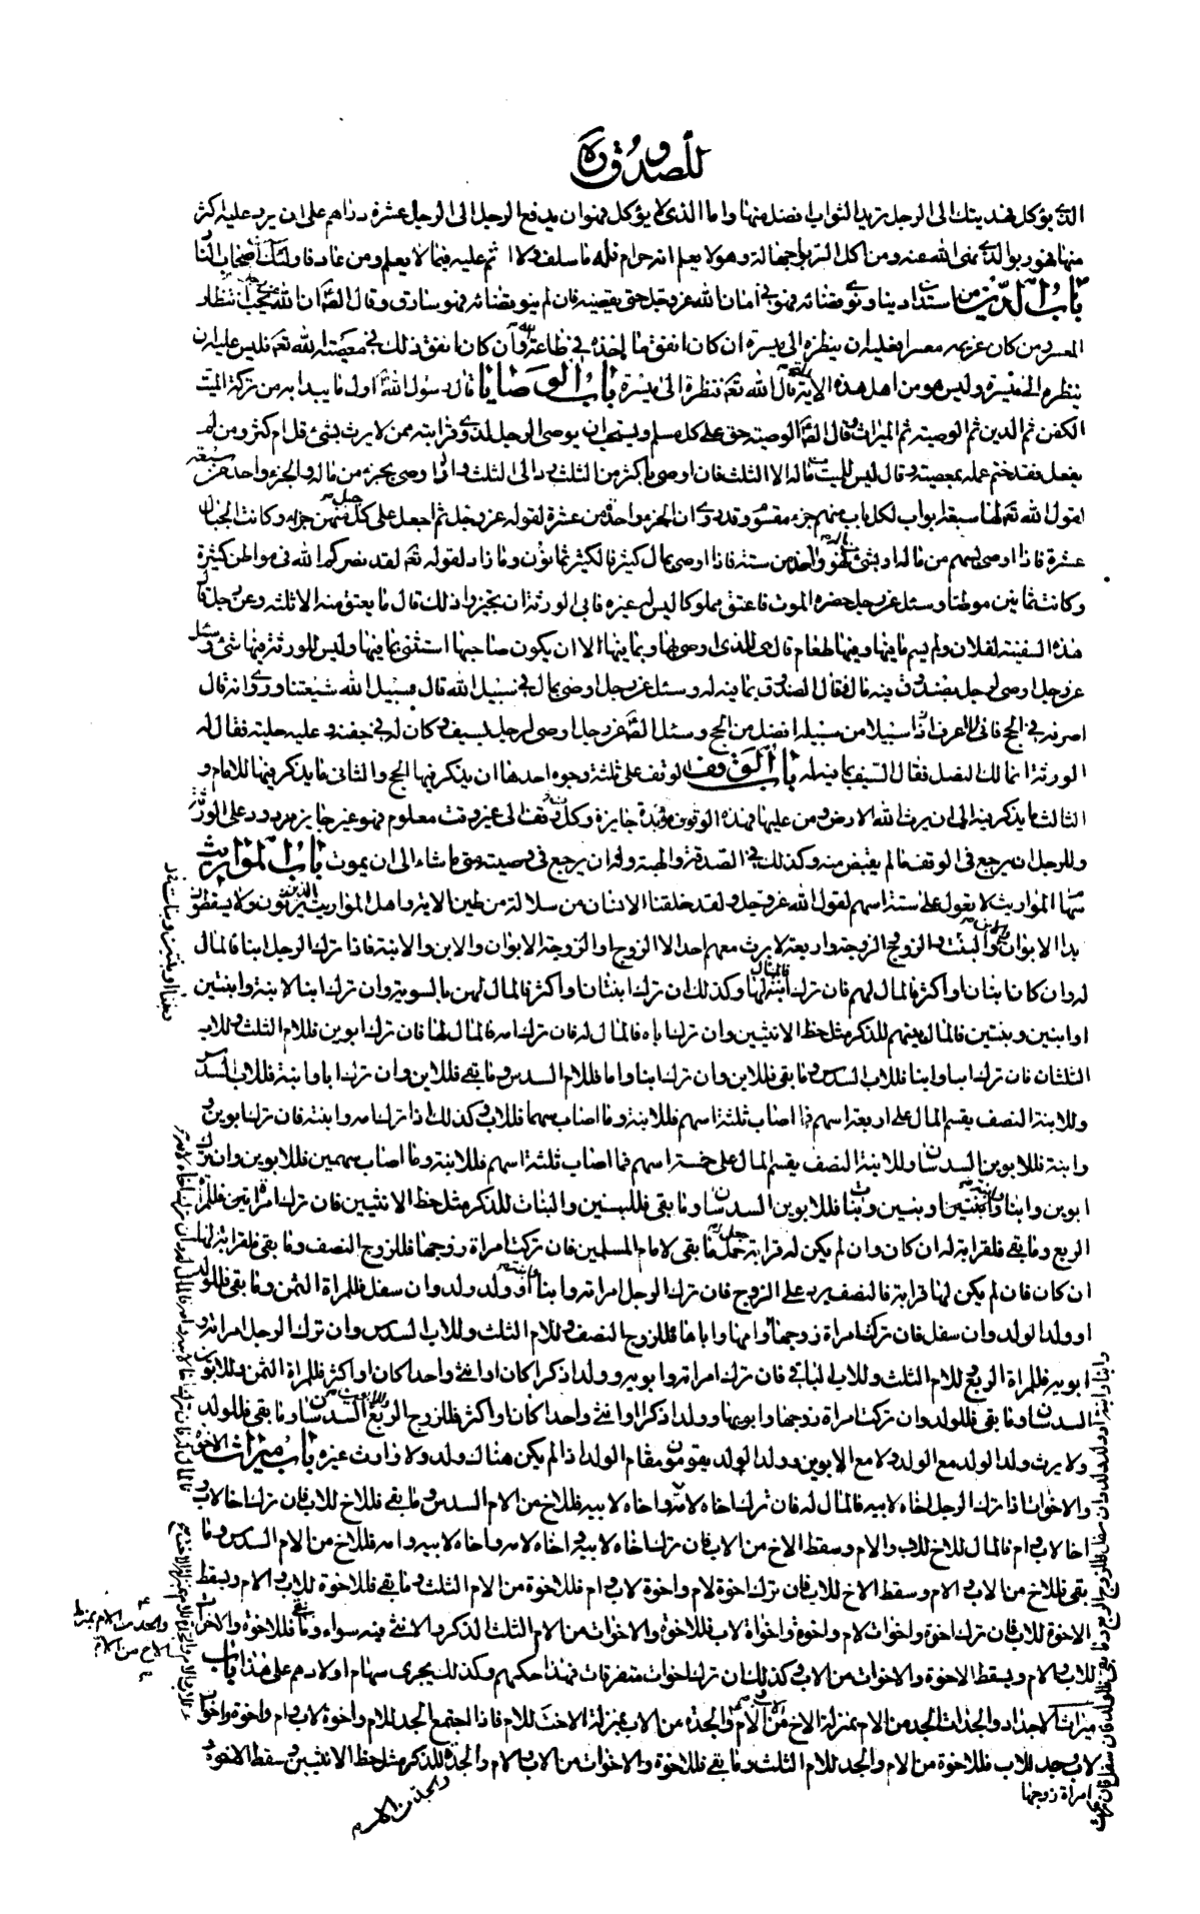 للصدوق ره
الذي يؤكل فهديتك الى الرجل تريد الثواب افضل منها واما الذي لا يؤكل فهو ان يدفع الرجل الى الرجل عشرة دراهم على ان يرد عليه اكثر
منها فهو ربوا الذي نهى الله عنه ومن اكل الربوا بجهالة وهو لا يعلم انه حرام فله ما سلف ولا اثم عليه فيما لا يعلم ومن عاد فاولئك اصحاب النار
باب الدين من استدان دينا ونوى قضائه فهو في امان الله عز وجل حتى يقضيه فان لم ينو قضائه فهو سارق وقال الص ان الله يحب انظار
المعسر ومن كان غريمه معسرا فعليه ان ينظره الى ميسرة ان كان انفق ما اخذه في طاعة الله وان كان انفق ذلك في معصية الله تع فليس عليه ان
ينظره الى ميسرة وليس هو من اهل هذه الاية قال الله تع فنظرة الى ميسرة باب الوصايا قال رسول الله اول ما يبدا به من تركة الميت
الكفن ثم الدين ثم الوصية ثم الميراث وقال الص الوصية حق على كل مسلم ويستحب ان يوصى الرجل لذوي قرابته ممن لا يرث بشئ قل ام كثر ومن لم
يفعل فقد ختم عمله بمعصية وقال ليس للميت من ماله الا الثلث فان اوصى باكثر من الثلث رد الى الثلث واذا اوصى بجزء من ماله فالجزء واحد من سبعة
لقول الله تع لها سبعة ابواب لكل باب منهم جزء مقسوم وقد روى ان الجزء واحد من عشرة لقوله عز وجل ثم اجعل على كل جبل منهن جزءا وكانت الجبال
عشرة فاذا اوصى بسهم من ماله او بشئ من ماله فهو واحد من ستة فاذا اوصى بمال كثير فالكثير ثمانون وما زاد لقوله تع لقد نصركم الله فى مواطن كثيرة
وكانت ثمانين موطنا وسئل عن رجل حضره الموت فاعتق مملوكا ليس له غيره فابى الورثة ان يجيزوا ذلك قال ما يعتق منه الا ثلثه وعن رجل قال
هذه السفينة لفلان ولم يسم ما فيها وفيها طعام قال هى للذى اوصى بها وبما فيها الا ان يكون صاحبها استثنى بما فيها وليس للورثة فيها شئ وسئل
عن رجل اوصى لرجل بصندوق فيه مال فقال الصندوق بما فيه له وسئل عن رجل اوصى بمال فى سبيل الله قال سبيل الله شيعتنا وروى انه قال
اصرفه في الحج فانى لا اعرف سبيلا من سبيله افضل من الحج وسئل الص عن رجل اوصى لرجل بسيف وكان له في جفن وعليه حلية فقال له
الورثة انما لك النصل فقال السيف بما فيه له باب الوقف الوقف على ثلثة وجوه احدها ان يذكر فيها الحج والثانى ما يذكر فيها للامام و
الثالث ما يذكر فيه الى ان يرث الله الارض ومن عليها فهذه الوقوف مؤبدة جايزة وكل وقف الى غير وقت معلوم فهو غير جايز مردود على الورثة
وللرجل ان يرجع فى الوقف ما لم يقبض منه وكذلك فى الصدقة والهبة وله ان يرجع فى وصيته متى ما شاء الى ان يموت باب المواريث
سهام المواريث لا يعول على ستة اسهم لقول الله عز وجل ولقد خلقنا الانسان من سلالة من طين الاية واهل المواريث الذين يرثون ولا يسقطون
ابدا الابوان والابن والبنت والزوج والزوجة واربعة لا يرث معهم احد الا الزوج والزوجة الابوان والابن والابنة فاذا ترك الرجل ابنا فالمال
له وان كانا ابنان او اكثر فالمال لهم فان ترك ابنة فالمال لها وكذلك ان ترك ابنتان او اكثر فالمال لهن بالسوية وان ترك ابنا وابنة وابنتين
او ابنين وبنتين فالمال بينهم للذكر مثل حظ الانثيين وان ترك اباه فالمال له فان ترك امه فالمال لها فان ترك ابوين فللام الثلث وللاب
الثلثان فان ترك ابا وابنا فللاب السدس وما بقى فللابن وان ترك ابنا واما فللام السدس وما بقى فللابن وان ترك ابا وابنة فللاب السدس
وللابنة النصف يقسم المال على اربعة اسهم فما اصاب ثلثة اسهم فللابنة وما اصاب سهما فللاب وكذلك اذا ترك امه وابنته فان ترك ابوين
وابنة فللابوين السدسان وللابنة النصف يقسم المال على خمسة اسهم فما اصاب ثلثة اسهم فللابنة وما اصاب سهمين فللابوين وان ترك
ابوين وابنا وابنة او بنين وبنات فللابوين السدسان وما بقى فللبنين والبنات للذكر مثل حظ الانثيين فان ترك امراة فللمراة
الربع وما بقى فلقرابة له ان كان وان لم يكن له قرابة جعل ما بقى لامام المسلمين فان تركت امراة زوجها فللزوج النصف وما بقى فلقرابة لها
ان كان فان لم يكن لها قرابة فالنصف يرد على الزوج فان ترك الرجل امراته وابنا او ابنة او ولد ولد وان سفل فللمراة الثمن وما بقى فللولد
او ولد الولد وان سفل فان تركت امراة زوجها وامها واباها فللزوج النصف وللام الثلث وللاب السدس وان ترك الرجل امراته و
ابويه فللمراة الربع وللام الثلث وللاب الباقى فان ترك امراته وابويه وولدا ذكرا كان او انثى واحدا كان او اكثر فللمراة الثمن وللابوين
السدسان وما بقى فللولد وان تركت امراة زوجها وابويها وولدا ذكرا او انثى واحدا كان او اكثر فللزوج الربع وللابوين السدسان وما بقى فللولد
ولا يرث ولد الولد مع الولد ولا مع الابوين وولد الولد يقومون مقام الولد اذا لم يكن هناك ولد ولا وارث غيره باب ميراث الاخوة
والاخوات اذا ترك الرجل اخاه لابيه فالمال له فان ترك اخاه لامه واخاه لابيه فللاخ من الام السدس وما بقى فللاخ للاب فان ترك اخا لاب و
اخا لاب وام فالمال للاخ للاب والام وسقط الاخ من الاب فان ترك اخاه لابيه واخاه لامه واخاه لابيه وامه فللاخ من الام السدس وما
بقى فللاخ من الاب والام وسقط الاخ للاب فان ترك اخوة لام واخوة لاب وام فللاخوة من الام الثلث وما بقى فللاخوة للاب والام ويسقط
الاخوة للاب فان ترك اخوة واخوات لام واخوة واخوات لاب فللاخوة والاخوات من الام الثلث الذكر والانثى فيه سواء وما بقى فللاخوة والاخوات
للاب والام ويسقط الاخوة والاخوات من الاب وكذلك ان ترك اخوات متفرقات فهذا حكمهم وكذلك يجرى سهام اولادهم على هذا باب
ميراث الاجداد والجدات الجد من الام بمنزلة الاخ من الام والجدة من الاب بمنزلة الاخت للام فاذا اجتمع الجد للام واخوة لاب وام واخوة واخوات
لاب وجد للاب فللاخوة من الام والجد للام الثلث وما بقى فللاخوة والاخوات من الاب والام والجد للذكر مثل حظ الانثيين وسقط الاخوة
امراة زوجها
والجد من الام بمنزلة
الاخ من الام